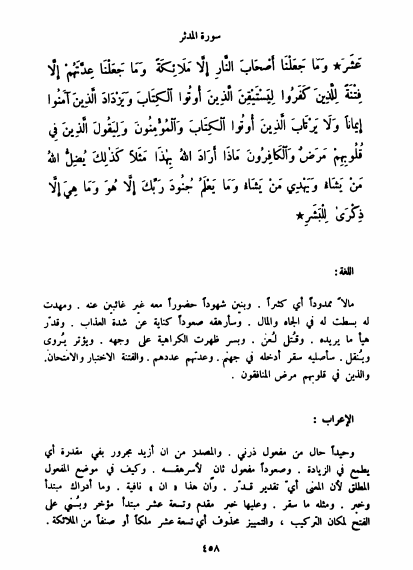 سورة المدثر
عَشَرَ★ وَمَا جَعَلْنَا أَصْحَابَ النَّارِ إِلَّا مَلَائِكَةً وَمَا جَعَلْنَا عِدَّتَهُمْ إِلَّا
فِتْنَةً لِلَّذِينَ كَفَرُوا لِيَسْتَيْقِنَ الَّذِينَ أُوتُوا الْكِتَابَ وَيَزْدَادَ الَّذِينَ آمَنُوا
إِيمَاناً وَلَا يَرْتَابَ الَّذِينَ أُوتُوا الْكِتَابَ وَالْمُؤْمِنُونَ وَلِيَقُولَ الَّذِينَ فِي
قُلُوبِهِمْ مَرَضٌ وَالْكَافِرُونَ مَاذَا أَرَادَ اللهُ بِهٰذَا مَثَلاً كَذٰلِكَ يُضِلُّ اللهُ
مَنْ يَشَاءُ وَيَهْدِي مَنْ يَشَاءُ وَمَا يَعْلَمُ جُنُودَ رَبِّكَ إِلَّا هُوَ وَمَا هِيَ إِلَّا
ذِكْرَى لِلْبَشَرِ★
اللغة :
مالاً ممدوداً أي كثيراً . وبنين شهوداً حضوراً معه غير غائبين عنه . ومهدت
له بسطت له في الجاه والمال . وسأرهقه صعوداً كناية عن شدة العذاب . وقدّر
هيأ ما يريده . وقُتل لُعن . وبسر ظهرت الكراهية على وجهه . ويؤثر يُروى
ويُنقل . سأصليه سقر أدخله في جهنم . وعدتهم عددهم . والفتنة الاختبار والامتحان.
والذين في قلوبهم مرض المنافقون .
الإعراب :
وحيداً حال من مفعول ذرني . والمصدر من ان أزيد مجرور بفي مقدرة أي
يطمع في الزيادة . وصعوداً مفعول ثان لأسرهقه . وكيف في موضع المفعول
المطلق لأن المعنى أيّ تقدير قدّر . وان هذا « ان » نافية . وما أدراك مبتدأ
وخبر . ومثله ما سقر . وعليها خبر مقدم وتسعة عشر مبتدأ مؤخر وبُني على
الفتح لمكان التركيب ، والتمييز محذوف أي تسعة عشر ملكاً أو صنفاً من الملائكة .
٤٥٨